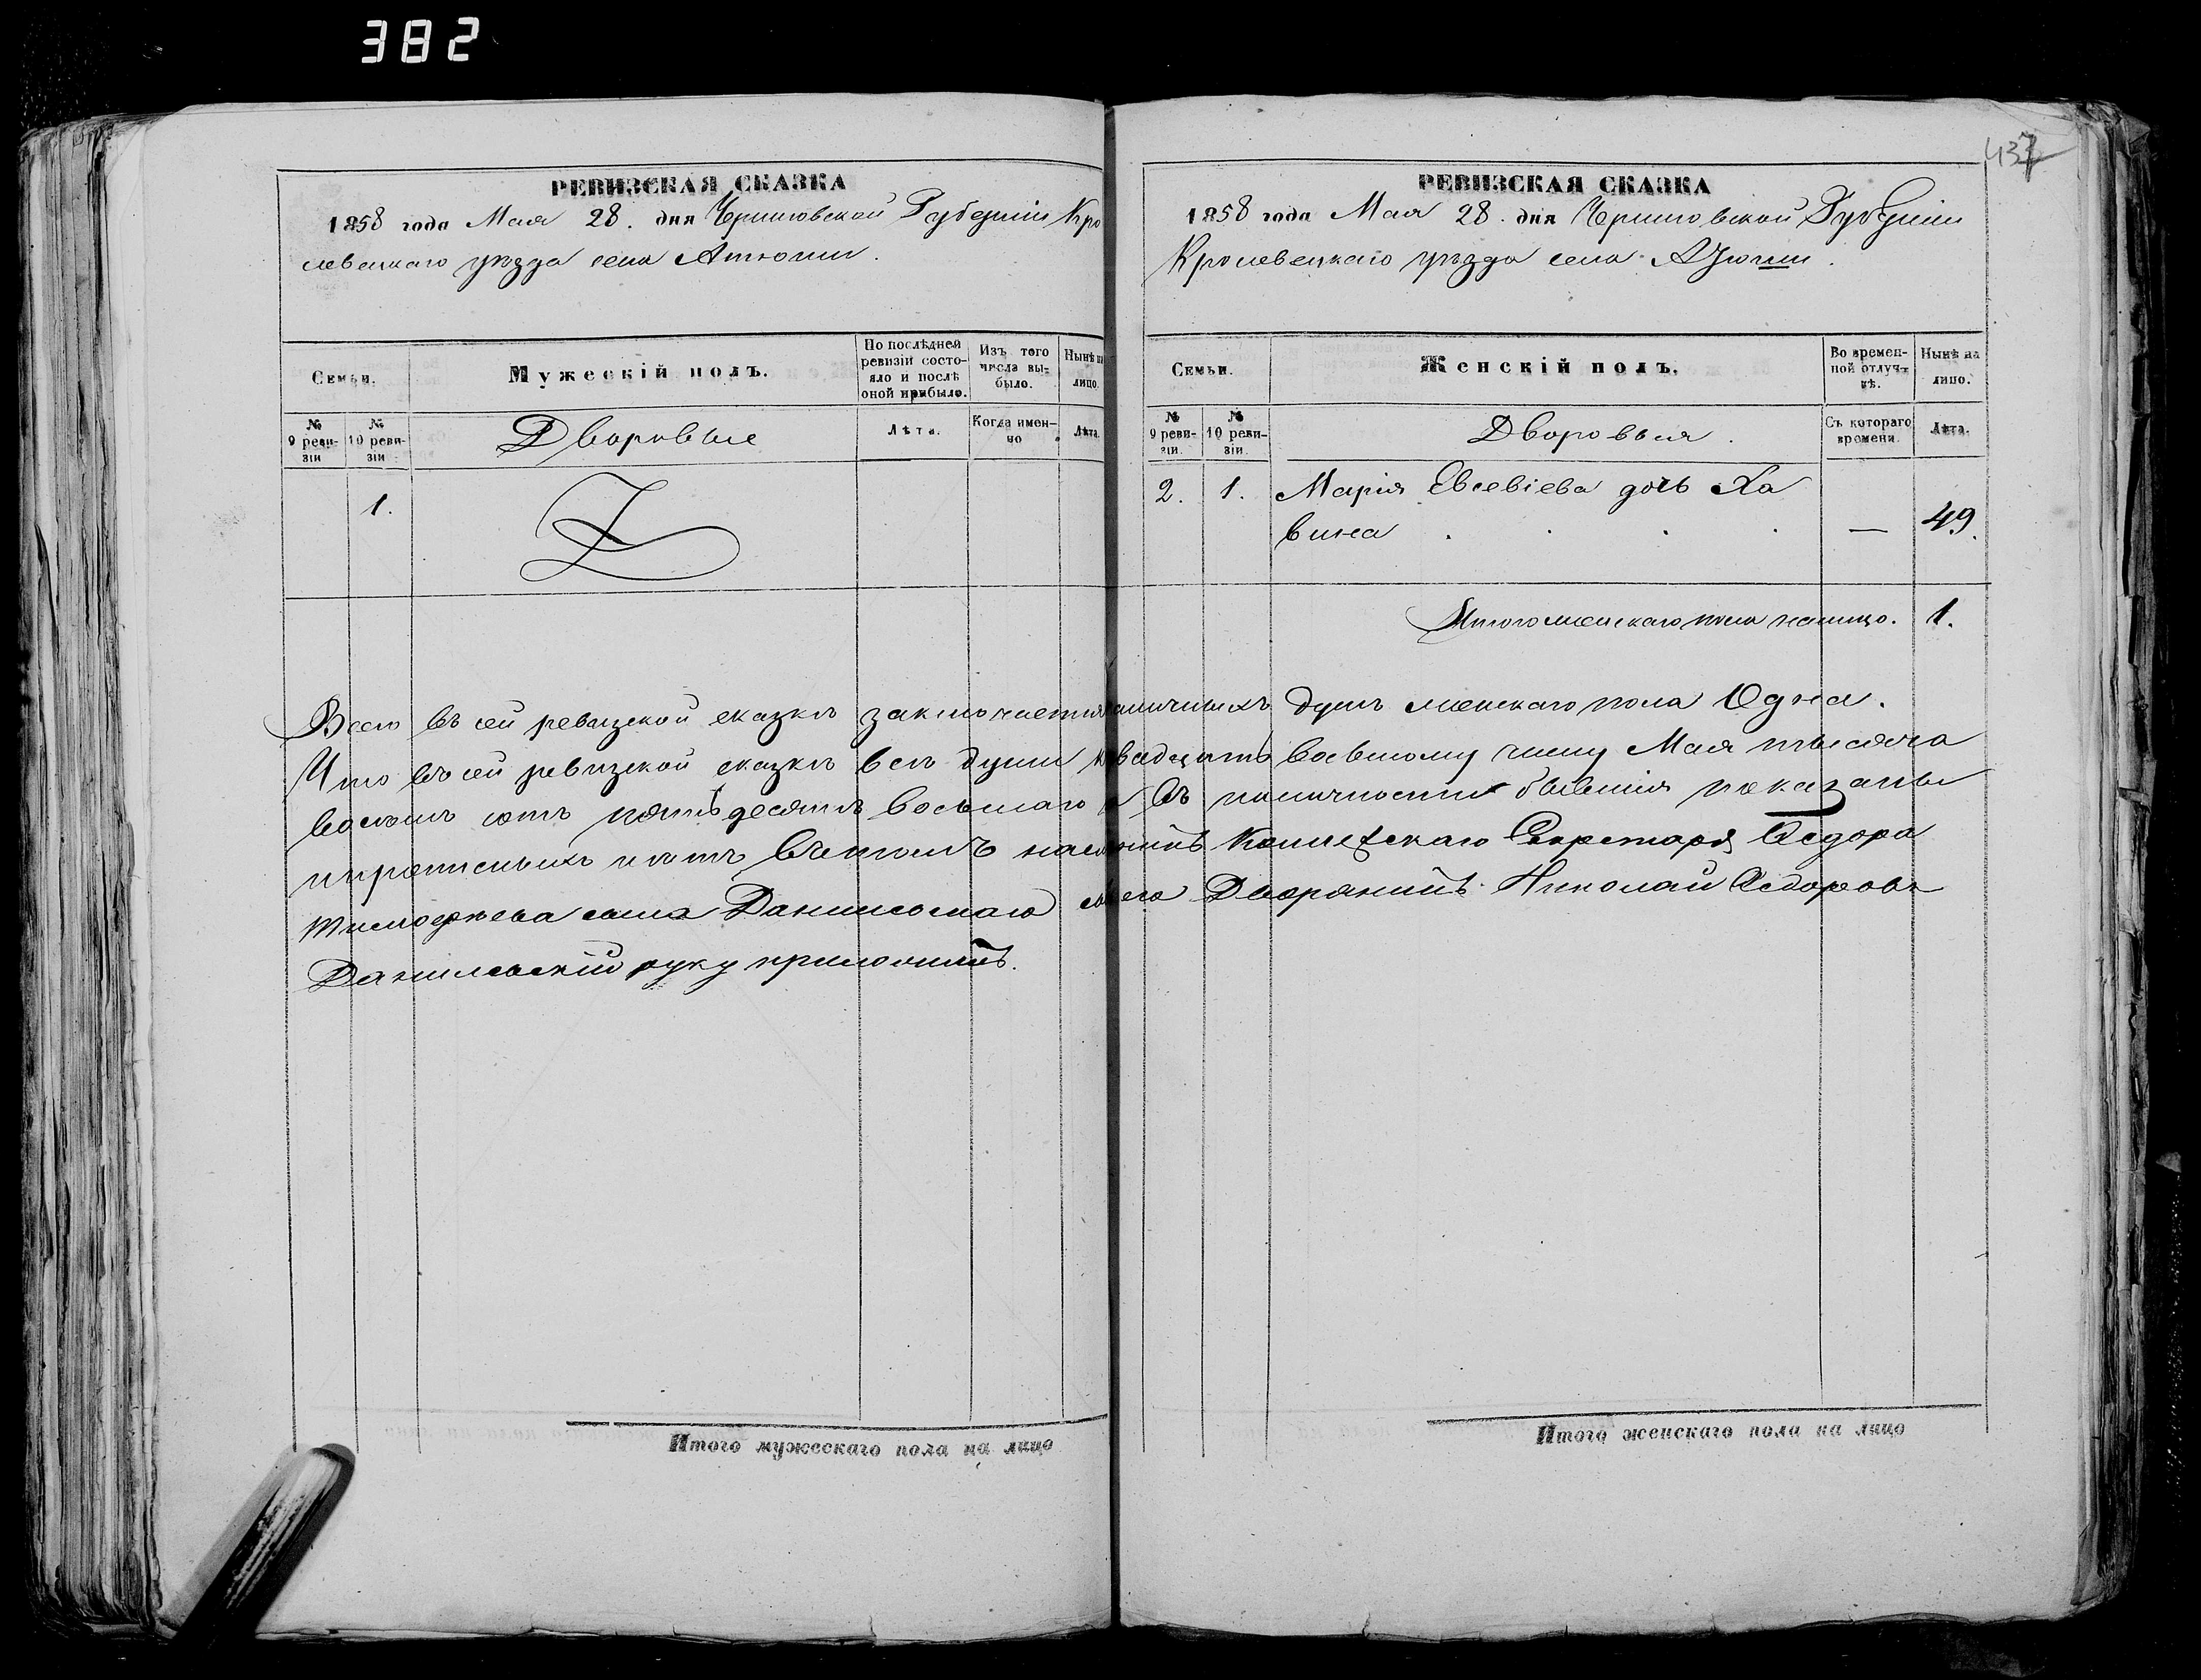 382
437
РЕВИЗСКАЯ СКАЗКА
1858 года Мая 28. дня Черниговской Губерніи Кро
левецкаго уѣзда села Атюши.
Семьи.
Мужескій полъ.
По послѣдней ревизіи состояло и послѣ оной прибыло.
Изъ того числа выбыло.
Нынѣ на лицо.
№ 9 ревизіи
№ 10 ревизіи
Дворовые
Лѣта.
Когда именно
Лѣта.
1.
РЕВИЗСКАЯ СКАЗКА
1858 года Мая 28. дня Черниговской Губерніи
Кролевецкаго уѣзда села Атюши.
Семьи.
Женскій полъ.
Во временной отлучкѣ.
Нынѣ на лицо.
№ 9 ревизіи.
№ 10 ревизіи.
Дворовыя.
Съ котораго времени.
Лѣта.
2. 1. Марія Евсевіева дочь Ха
вина . . . . — 49.
Итого женскаго пола налицо. 1.
Всего въ сей ревизской сказкѣ заключается наличныхъ душъ женскаго пола Одна.
Что въ сей ревизской сказкѣ всѣ души двадцать восьмому числу Мая тысяча
восемь сотъ пятьдесятъ восьмаго въ наличности бывшія показаны
и прописныхъ нѣтъ Въ томъ Коллежскаго Секретаря Федора
Тимофеева сына Данилевскаго Дворянинъ Николай Федоровъ
Данилевскій руку приложилъ.
Итого мужескаго пола на лицо
Итого женскаго пола на лицо